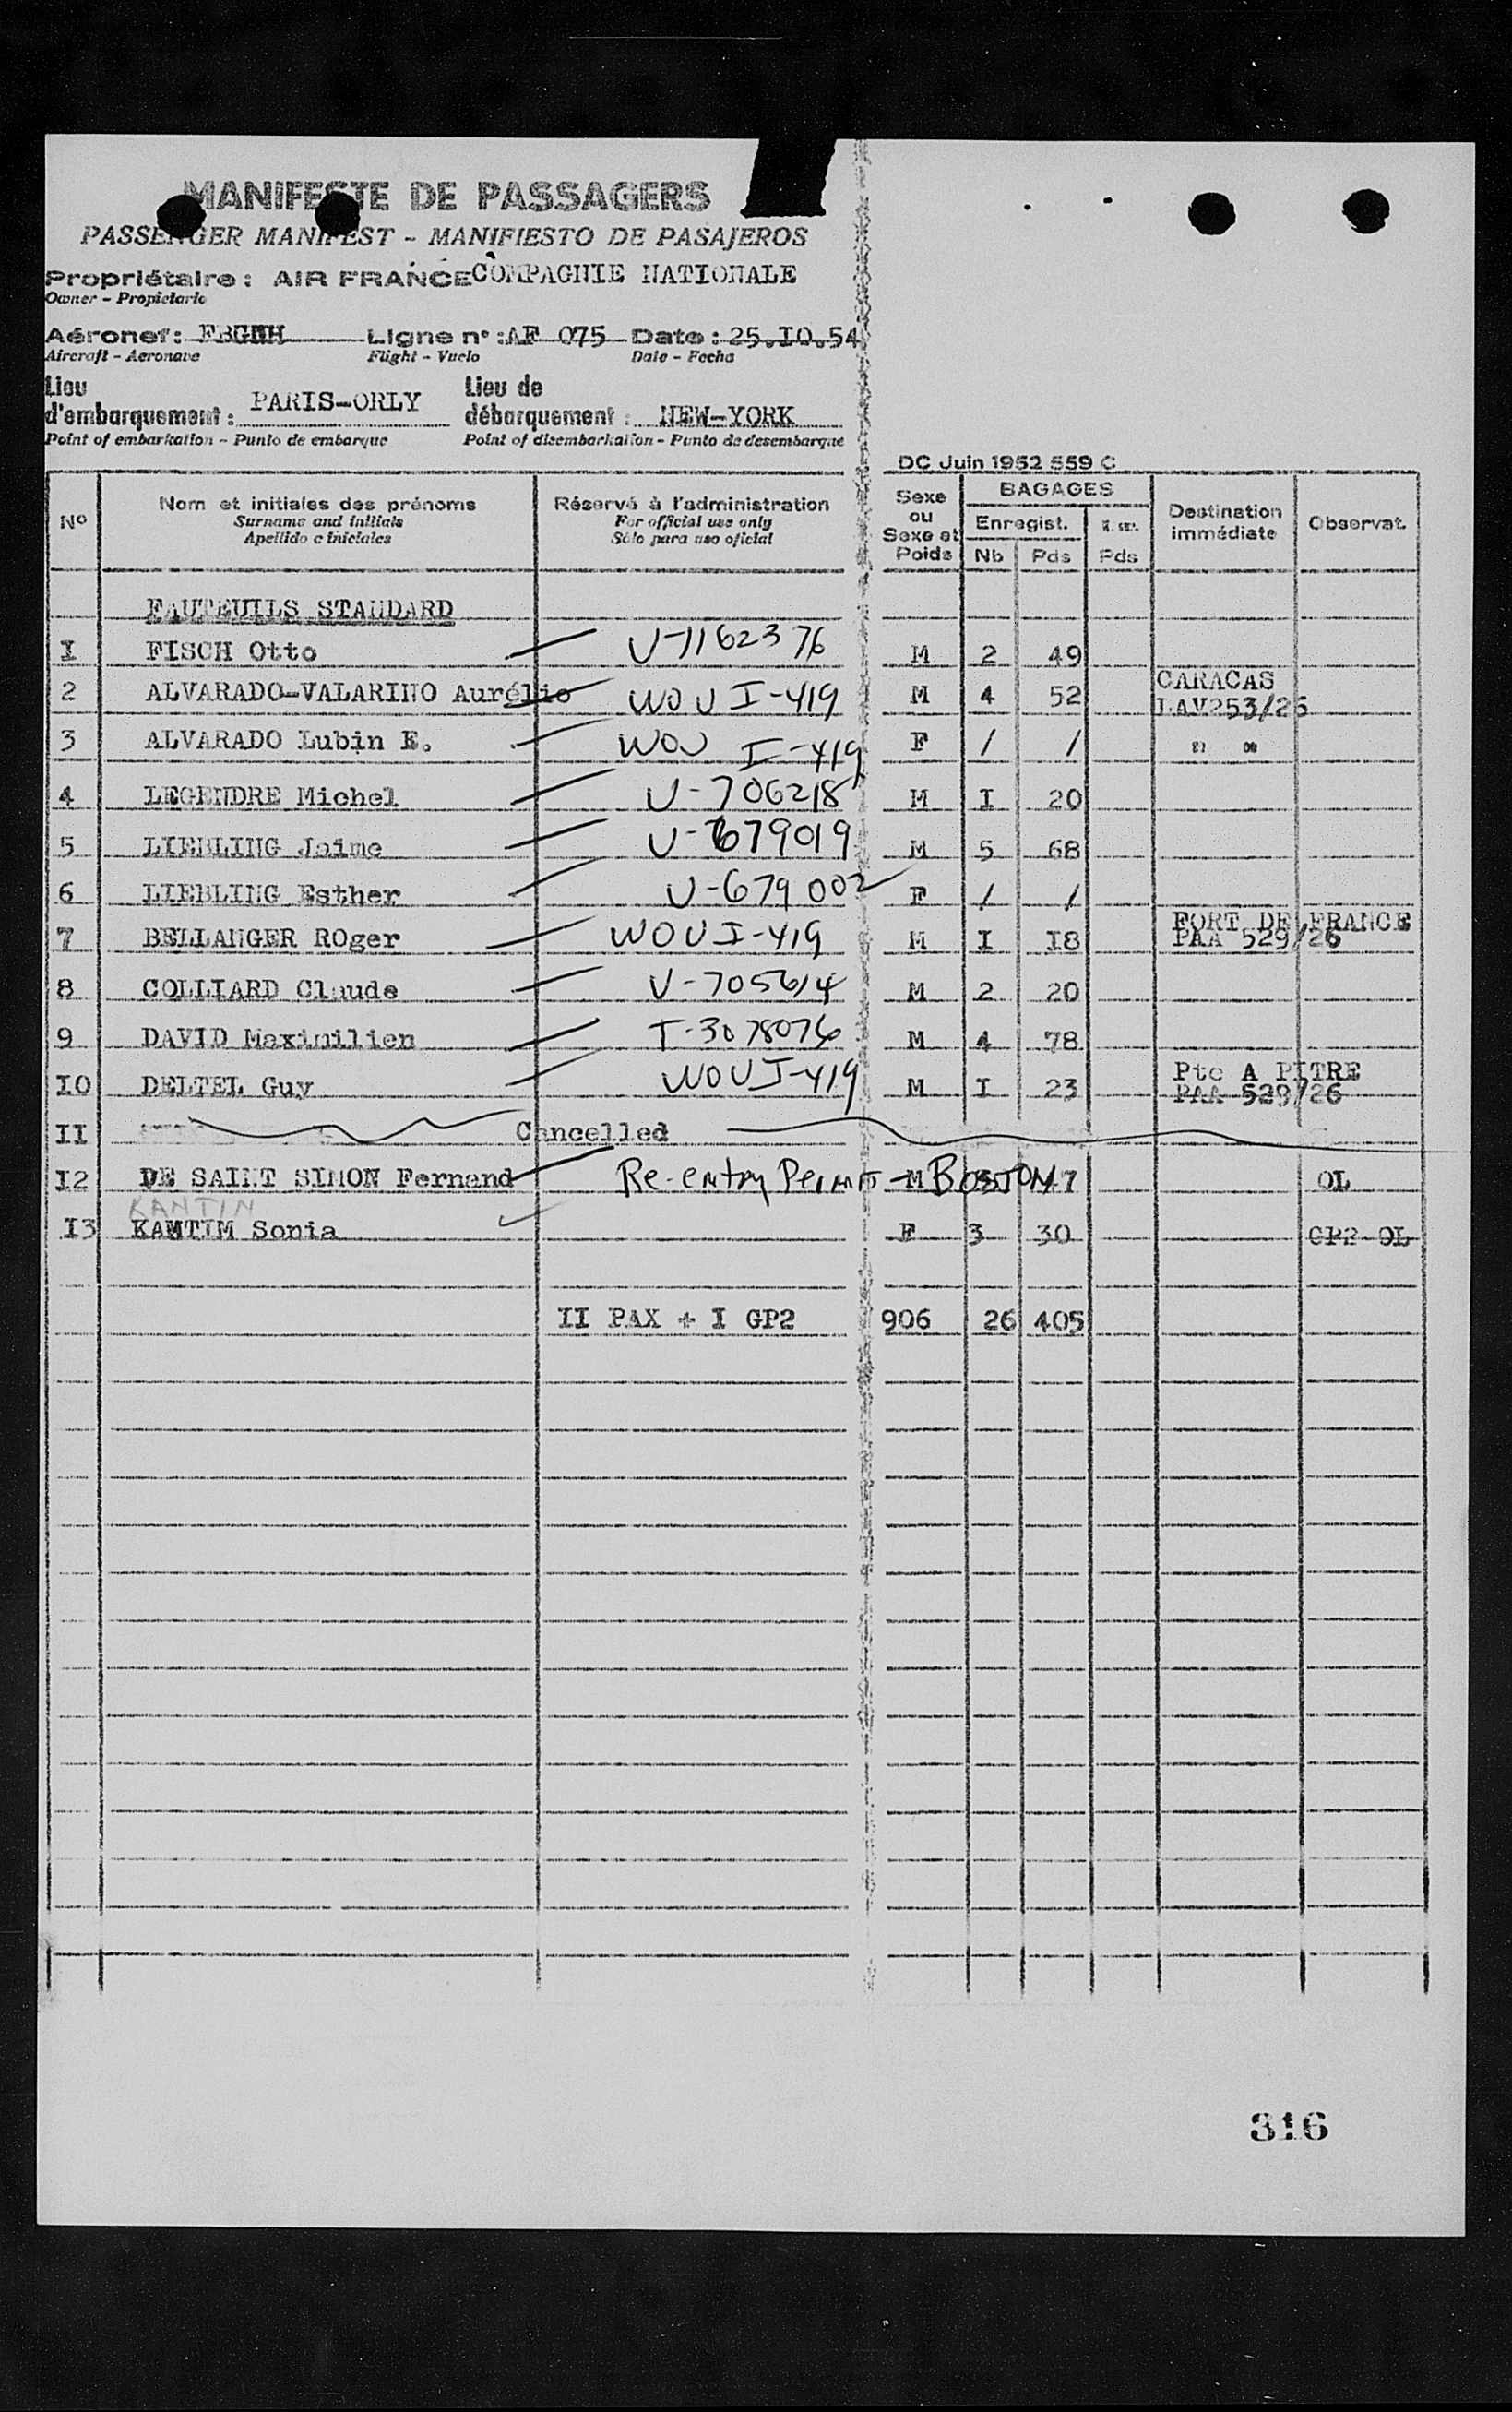 MANIFESTE DE PASSAGERS
PASSENGER MANIFEST - MANIFIESTO DE PASAJEROS
Propriétaire : AIR FRANCE COMPAGNIE NATIONALE
Owner - Propietario
Aéronef : Ligne n° : AF 075 Date : 25.IO.54
Aircraft - Aeronave Flight - Vuelo Date - Fecha
Lieu d'embarquement : PARIS-ORLY Lieu de débarquement : NEW-YORK
Point of embarkation - Punto de embarque Point of disembarkation - Punto de desembarque
DC Juin 1952 559 C
N° Nom et initiales des prénoms Réservé à l'administration Sexe ou Sexe et Poids BAGAGES Destination immédiate Observat.
Surname and initials For official use only Enregist.
Apellido e iniciales Sólo para uso oficial Nb Pds Pds
FAUTEUILS STANDARD
I FISCH Otto U-1162376 M 2 49
2 ALVARADO-VALARINO Aurélio WOV I-419 M 4 52 CARACAS LAV253/26
3 ALVARADO Lubin E. WOV I-419 F / / " "
4 LEGENDRE Michel V-706218 M I 20
5 LIEBLING Jaime V-679019 M 5 68
6 LIEBLING Esther V-679002 F / /
7 BELLANGER ROger WOV I-419 M I I8 FORT DE FRANCE PAA 529/26
8 COLLIARD Claude V-705614 M 2 20
9 DAVID Maximilien T-3078076 M 4 78
IO DELTEL Guy WOV I-419 M I 23 Pte A PITRE PAA 529/26
II Cancelled
I2 DE SAINT SIMON Fernand Re-entry Permit - BOSTON M 7 OL
KANTIN
I3 KAMTIM Sonia F 3 30 GP2 OL
II PAX + I GP2 906 26 405
316